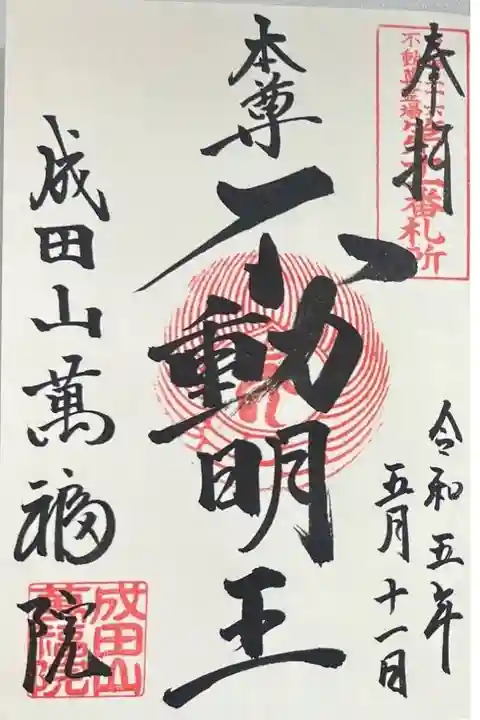 奉拝
不動尊霊場
番札所
令和五年
五月十一日
本尊
不動明王
成田山萬福院
成田山
萬福院